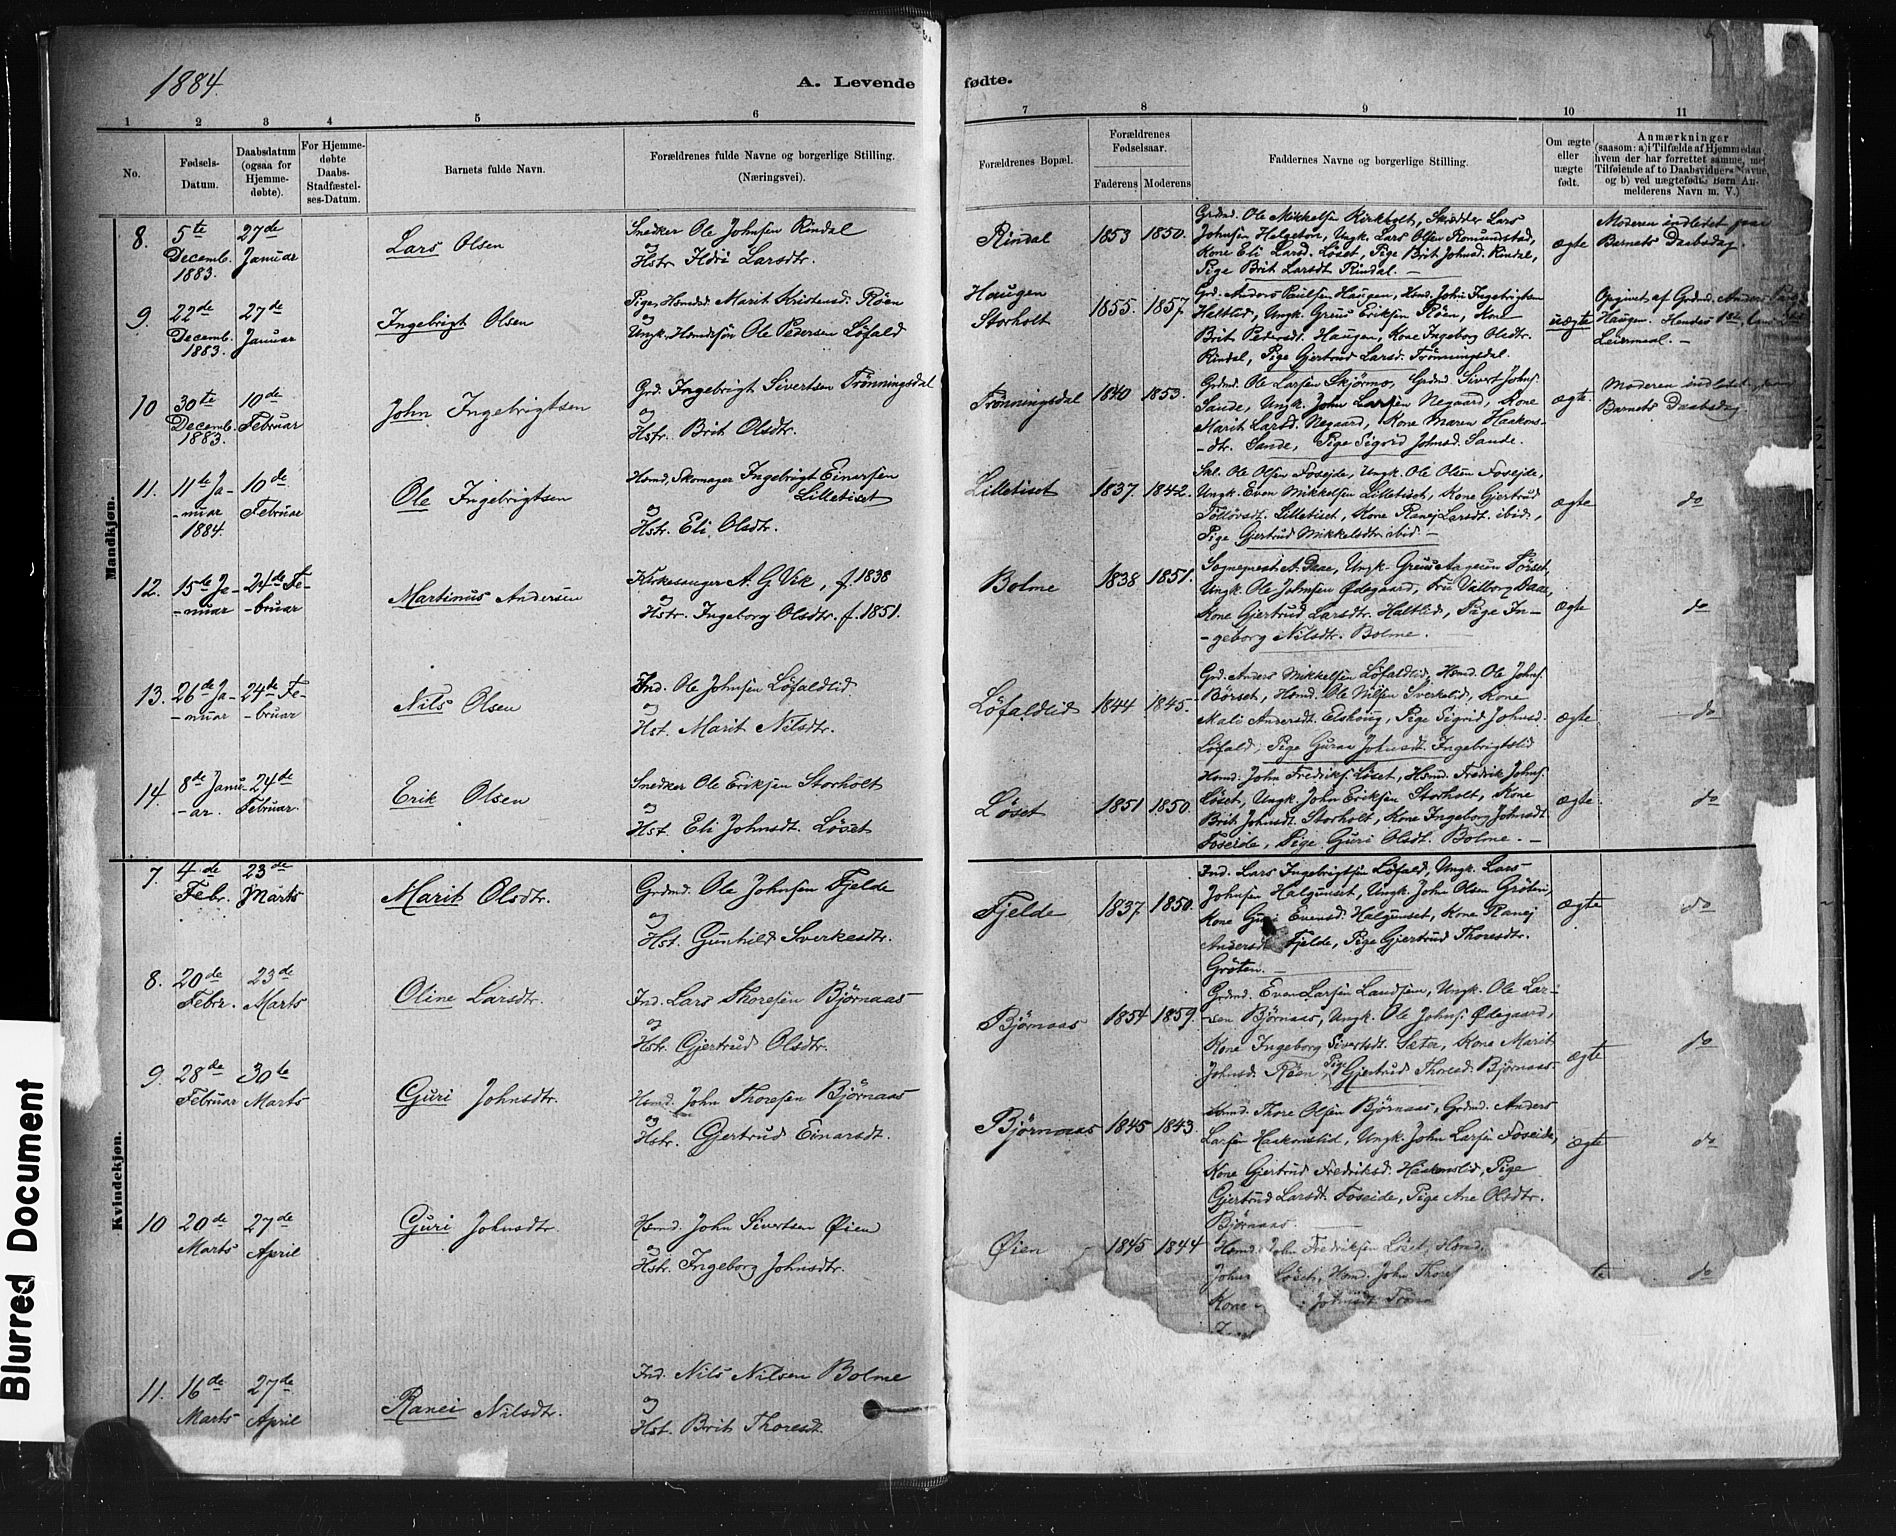 1884.
A. Levende
fødte.
1 2 3 4 5 6
7 8 9 10 11
No.
Fødsels-
Datum.
Daabsdatum
(ogsaa for
Hjemme-
døbte).
For Hjemme-
døbte
Daabs-
Stadfæstel-
ses-Datum.
Barnets fulde Navn.
Forældrenes fulde Navne og borgerlige Stilling.
(Næringsvei).
Forældrenes Bopæl.
Forældrenes
Fødselsaar.
Faderens
Moderens
Faddernes Navne og borgerlige Stilling.
Om ægte
eller
uægte
født.
Anmærkninger
(saasom: a) i Tilfælde af Hjemmedaab,
hvem der har forrettet samme, med
Tilføiende af to Daabsvidners Navne,
og b) ved uægtefødte Børn An-
melderens Navn m. V.)
Mandkjøn.
8.
5te
Decemb.
1883.
27de
Januar
Lars Olsen
Snedker Ole Johnsen Rindal
og
Hstr. Larsdtr.
Rindal
1853
1850.
Grdmd. Ole Mikkelsen Kirkholt, Skrædder Lars
Johnsen Helgeton, Ungk. Lars Olsen Romundstad,
Kone Eli Larsd. Løset, Pige Brit Johnsd. Rindal,
Pige Brit Larsdt. Rindal. —
ægte
Moderen indledet paa
Barnets Daabsdag.
9.
22de
Decemb.
1883.
27de
Januar
Ingebrigt Olsen
Pige, Marit Kristensd. Røen
og
Ungk. Ole Pedersen Løfald
Haugen
Storholt
1855.
1857.
Grd. Anders Paulsen Haugen, Hsmd. John Ingebrigtsen
Haltlid, Ungk. Eriksen Røen, Kone
Brit Pedersdt. Haugen, Kone Ingeborg Olsdtr.
Rindal, Pige Gjertrud Larsd. Trønningsdal.
uægte
Opgivet af Grdmd. Anders
Haugen. Hendes 1ste,
Leiermaal. —
10
30te
Decemb.
1883.
10de
Februar
John Ingebrigtsen
Grd. Ingebrigt Sivertsen Trønningsdal
og
Hstr. Brit Olsdtr.
Trønningsdal
1840
1853.
Grdmd. Ole Larsen Skjørmo, Grdmd. Sivert Johns.
Sande, Ungk. John Larsen Negaard, Kone
Marit Larsd. Negaard, Kone Maren Haakons-
-dtr. Sande, Pige Sigrid Johnsd. Sande.
ægte.
Moderen indledet paa
Barnets Daabsdag
11.
11te Ja-
-nuar
1884.
10de
Februar
Ole Ingebrigtsen
Hsmd. Skomager Ingebrigt Einarsen
Lilletiset
og
Hstr. Eli Olsdtr.
Lilletiset
1837.
1842.
Ole Olsen Foseide, Ungk. Ole Olsen Foseide,
Ungk. Even Mikkelsen Lilletiset, Kone Gjertrud
Lilletiset, Kone Ranei Larsdt. ibid,
Pige Gjertrud Mikkelsdtr. ibid. —
ægte
do
12.
15te Ja-
-nuar
24de Fe-
-bruar
Martinus Andersen
Kirkesanger A. G. Vik, f. 1838
og
Hstr. Ingeborg Olsdtr. f. 1851.
Bolme
1838
1851.
Sognepræst A. Daae, Ungk. Aagesen Førset,
Ungk. Ole Johnsen Ødegaard, Fru Valborg Daae,
Kone Gjertrud Larsdtr. Haltlid, Pige In-
-geborg Nilsdtr. Bolme.
ægte
do
13.
26de Ja-
-nuar
24de Fe-
-bruar
Nils Olsen
Ind. Ole Johnsen Løfaldlid
og
Hst. Marit Nilsdtr.
Løfaldlid
1844
1845.
Grd. Anders Mikkelsen Løfaldlid, Hsmd. Ole Johns.
Børset, Hsmd. Ole Nilsen Sverkelid, Kone
Mali Andersdt. Elshoug, Pige Sigrid Johnsd.
Løfald, Pige Guraa Johnsdt. Ingebrigtslid
ægte.
do
14.
8de Janu-
-ar.
24de
Februar.
Erik Olsen
Snedker Ole Eriksen Storholt
og
Hst. Eli Johnsdt. Løset
Løset
1851
1850.
Hsmd. John Fredriks. Løset, Hsmd. Fredrik Johns.
Løset, Ungk. John Eriksen Storholt, Kone
Brit Johnsdt. Storholt, Kone Ingeborg Johnsdt.
Foseide, Pige Guri Olsdt. Bolme. —
ægte.
do
Kvindekjøn.
7.
4de
Febr.
23de
Marts
Marit Olsdtr.
Grdmd. Ole Johnsen Fjelde
og
Hst. Gunhild Sverkesdtr.
Fjelde
1837.
1850.
Ind. Lars Ingebrigtsen Løfald, Ungk. Lars
Johnsen Halgunset, Ungk. John Olsen Grøten,
Kone Evensd. Halgunset, Kone Ranei
Andersdt. Fjelde, Pige Gjertrud Thoresdtr.
Grøten. —
ægte
do
8.
20de
Febr.
23de
Marts
Oline Larsdtr.
Ind. Lars Thoresen Bjørnaas
og
Hstr. Gjertrud Olsdtr.
Bjørnaas
1854
1859.
Grdmd. Even Larsen Landsem, Ungk. Ole Lar-
-sen Bjørnaas, Ungk. Ole Johns. Ødegaard,
Kone Ingeborg Sivertsdt. Sæter, Kone Marit
Johnsd. Røen, Pige Gjertrud Thoresd. Bjørnaas
ægte
do
9.
28de
Februar
30te
Marts
Guri Johnsdtr.
Hsmd. John Thoresen Bjørnaas
og
Hstr. Gjertrud Einarsdt.
Bjørnaas
1845
1843.
Hsmd. Thore Olsen Bjørnaas, Grdmd. Anders
Larsen Haakonslid, Ungk. John Larsen Foseide,
Kone Gjertrud Fredriksd. Haakonslid, Pige
Gjertrud Larsdt. Foseide, Pige Ane Olsdtr.
Bjørnaas. —
ægte
do
10
20de
Marts
27de
April
Guri Johnsdtr.
Hsmd. John Sivertsen Øien
og
Hstr. Ingeborg Johnsdtr.
Øien
1845
1844
Hsmd. John Fredriksen Løset, Hsmd.
Johns Løset, Hsmd. John Thore
Kone Johnsdt.
te
do
11.
16de
Marts
27de
April
Ranei Nilsdtr.
Ind. Nils Nilsen Bolme
og
Hst. Brit Thoresdt.
Blurred Document